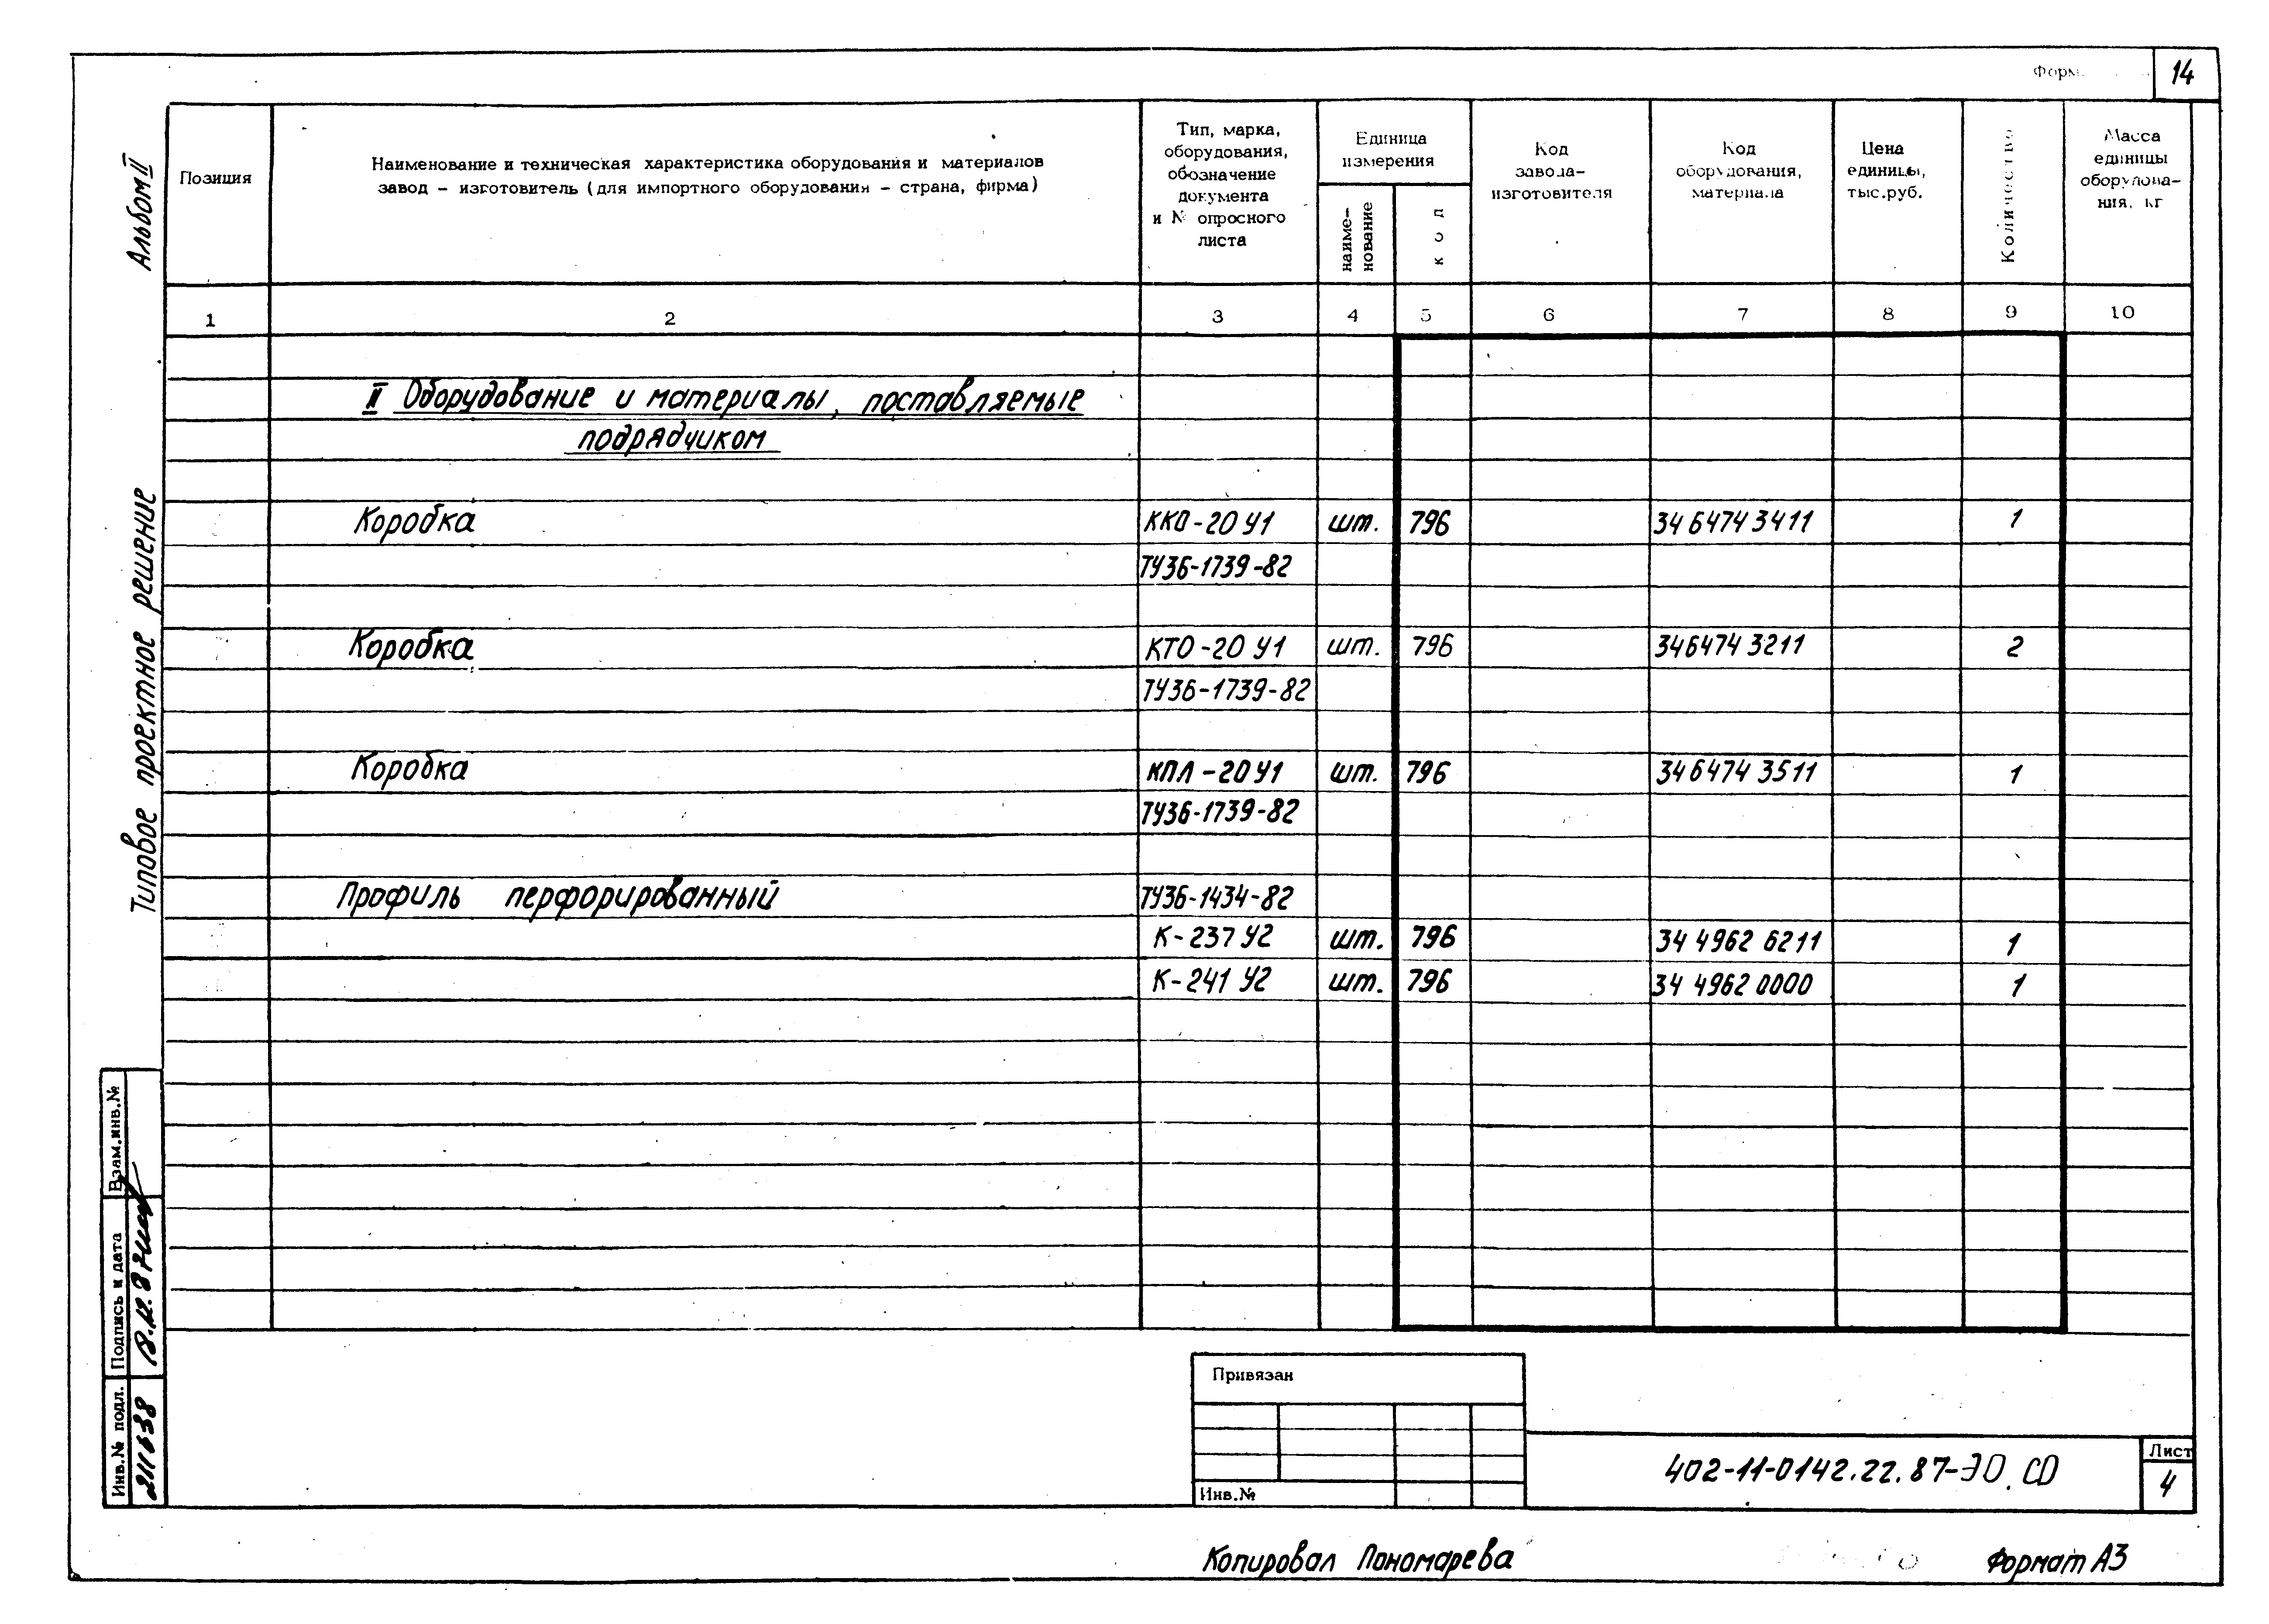 14
Альбом II
Типовое проектное решение
Позиция
Наименование и техническая характеристика оборудования и материалов
завод – изготовитель (для импортного оборудования – страна, фирма)
Тип, марка,
оборудования,
обозначение
документа
и № опросного
листа
Единица
измерения
наиме-
нование
код
Код
завода-
изготовителя
Код
оборудования,
материала
Цена
единицы,
тыс.руб.
Количество
Масса
единицы
оборудова-
ния, кг
1 2 3 4 5 6 7 8 9 10
II Оборудование и материалы, поставляемые
подрядчиком
Коробка ККО-20 У1 шт. 796 34 6474 3411 1
ТУ36-1739-82
Коробка КТО-20 У1 шт. 796 346474 3211 2
ТУ36-1739-82
Коробка КПЛ-20У1 шт. 796 34 6474 3511 1
ТУ36-1739-82
Профиль перфорированный ТУ36-1434-82
К-237 У2 шт. 796 34 4962 6211 1
К-241 У2 шт. 796 34 4962 0000 1
Взам.инв.№
Подпись и дата
Инв.№ подл.
211638
Привязан
Инв.№
402-11-0142.22.87-ЭО.СО
Лист
4
Копировал Пономарева
Формат А3